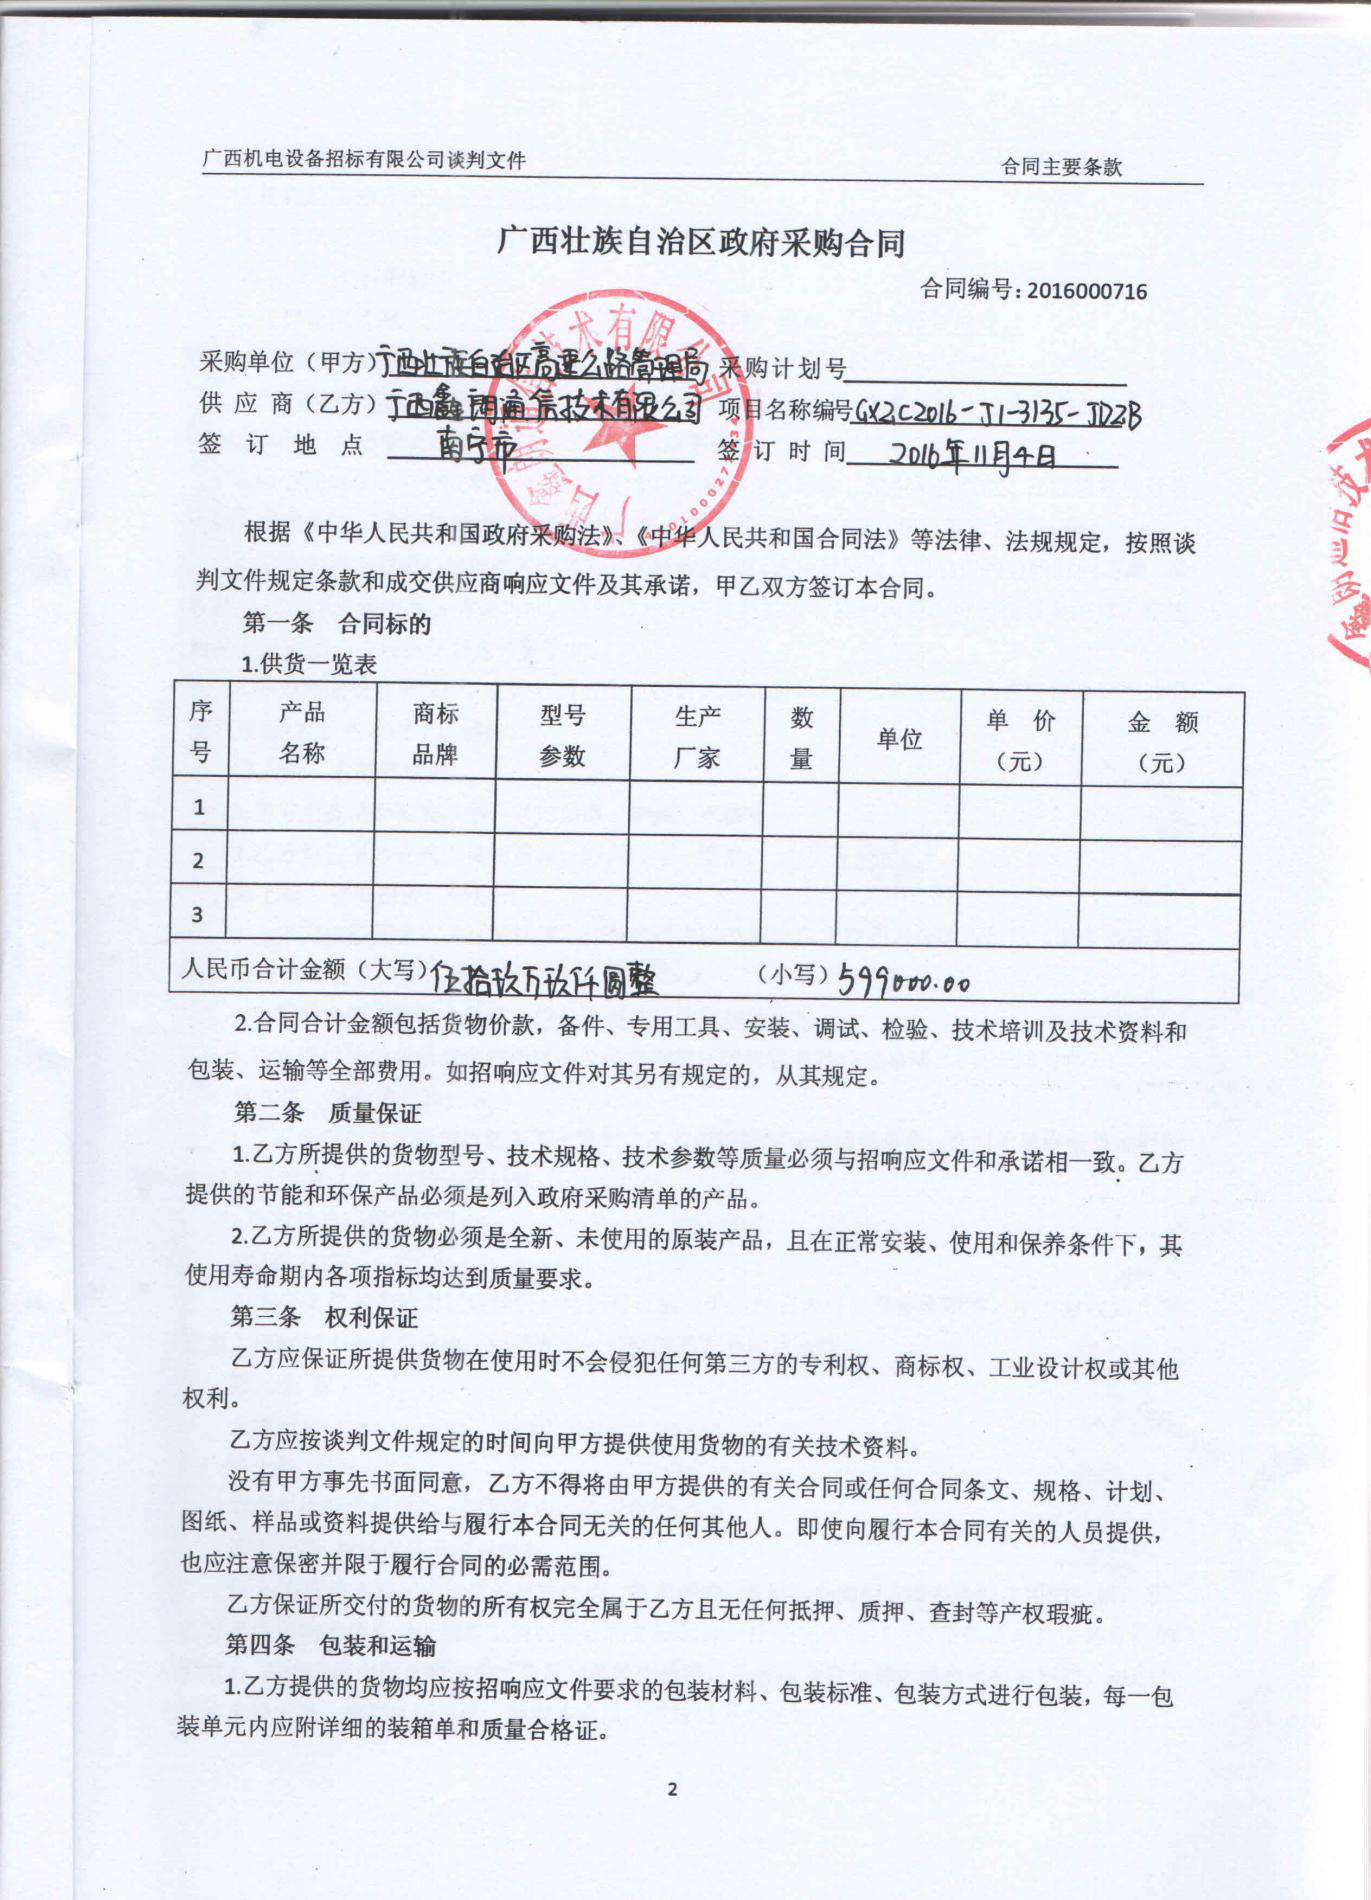 广西机电设备招标有限公司谈判文件 合同主要条款
广西壮族自治区政府采购合同
合同编号：2016000716
采购单位（甲方）广西壮族自治区高速公路管理局 采购计划号
供 应 商（乙方）广西鑫朗通信技术有限公司 项目名称编号GXZC2016-J1-3135-JDZB
签 订 地 点 南宁市 签 订 时 间 2016年11月4日
根据《中华人民共和国政府采购法》、《中华人民共和国合同法》等法律、法规规定，按照谈
判文件规定条款和成交供应商响应文件及其承诺，甲乙双方签订本合同。
第一条 合同标的
1.供货一览表
序号 产品名称 商标品牌 型号参数 生产厂家 数量 单位 单 价（元） 金 额（元）
1
2
3
人民币合计金额（大写）伍拾玖万玖仟圆整 （小写）599000.00
2.合同合计金额包括货物价款，备件、专用工具、安装、调试、检验、技术培训及技术资料和
包装、运输等全部费用。如招响应文件对其另有规定的，从其规定。
第二条 质量保证
1.乙方所提供的货物型号、技术规格、技术参数等质量必须与招响应文件和承诺相一致。乙方
提供的节能和环保产品必须是列入政府采购清单的产品。
2.乙方所提供的货物必须是全新、未使用的原装产品，且在正常安装、使用和保养条件下，其
使用寿命期内各项指标均达到质量要求。
第三条 权利保证
乙方应保证所提供货物在使用时不会侵犯任何第三方的专利权、商标权、工业设计权或其他
权利。
乙方应按谈判文件规定的时间向甲方提供使用货物的有关技术资料。
没有甲方事先书面同意，乙方不得将由甲方提供的有关合同或任何合同条文、规格、计划、
图纸、样品或资料提供给与履行本合同无关的任何其他人。即使向履行本合同有关的人员提供，
也应注意保密并限于履行合同的必需范围。
乙方保证所交付的货物的所有权完全属于乙方且无任何抵押、质押、查封等产权瑕疵。
第四条 包装和运输
1.乙方提供的货物均应按招响应文件要求的包装材料、包装标准、包装方式进行包装，每一包
装单元内应附详细的装箱单和质量合格证。
2